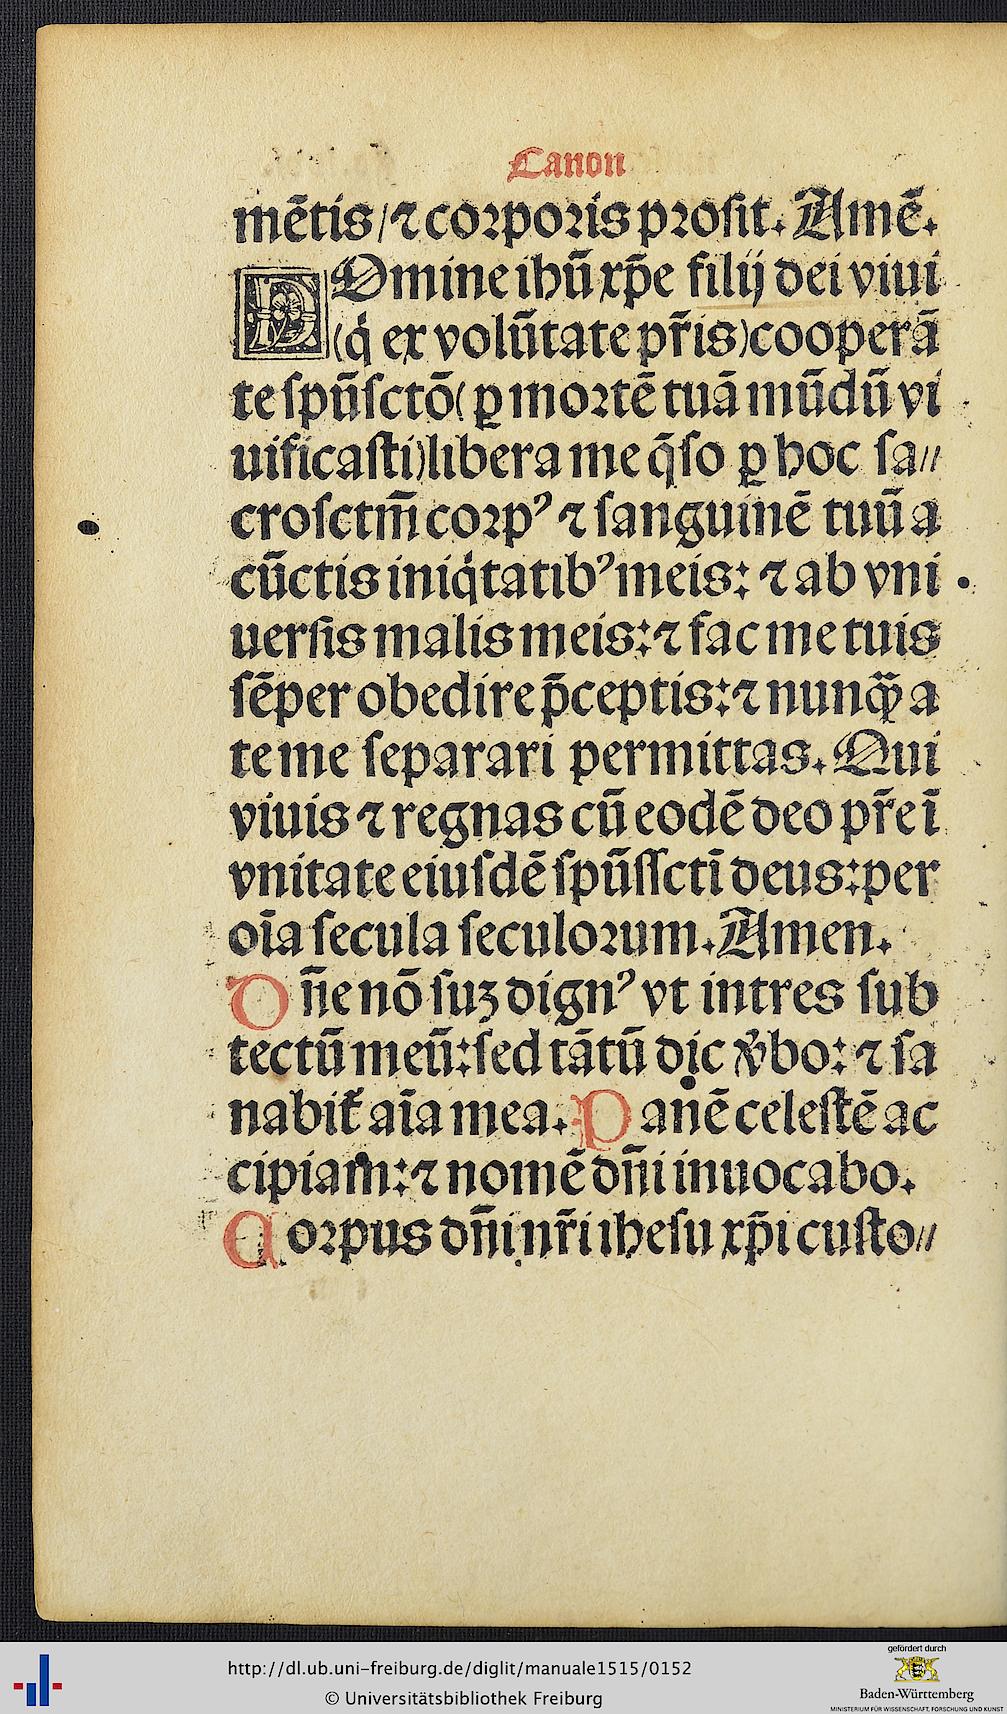 Canon
mētis/⁊ coꝛpoꝛis pꝛoſit. Amē.
DOmine ihū xp̄e filij dei viui
(q̇ ex volūtate pr̄is) cooperā
te ſpūſctō( ꝑ moꝛtē tuā mūdū vi
uificaſti)libera me q̄ſo ꝑ hoc ſa⸗
croſctm̄ coꝛpꝰ ⁊ ſanguinē tuū a
cūctis iniq̇tatibꝰ meis: ⁊ ab vni
uerſis malis meis:⁊ fac me tuis
ſēper obedire p̄ceptis:⁊ nunqꝫ̄ a
te me ſeparari permittas. Qui
viuis ⁊ regnas cū eodē deo pr̄e ī
vnitate eiuſdē ſpūſſctī deus:per
oīa ſecula ſeculoꝛum. Amen.
Dn̄e nō ſuꝫ dignꝰ vt intres ſub
tectū meū:ſed tātū dic v̓bo: ⁊ ſa
nabit᷑ aīa mea. Panē celeſtē ac
cipiam:⁊ nomē dn̄i inuocabo.
Coꝛpus dn̄i nr̄i iheſu xp̄i cuſto⸗
http://dl.ub.uni-freiburg.de/diglit/manuale1515/0152
© Universitätsbibliothek Freiburg
gefördert durch
Baden-Württemberg
MINISTERIUM FÜR WISSENSCHAFT, FORSCHUNG UND KUNST